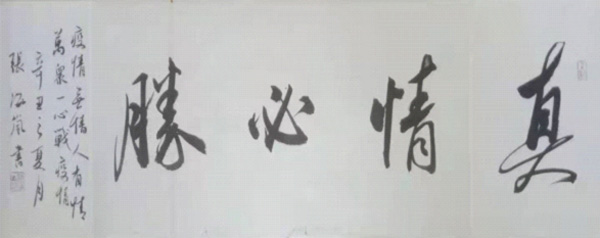 真情必勝
疫情無情人有情
萬眾一心戰疫情
辛丑之夏月
張
書